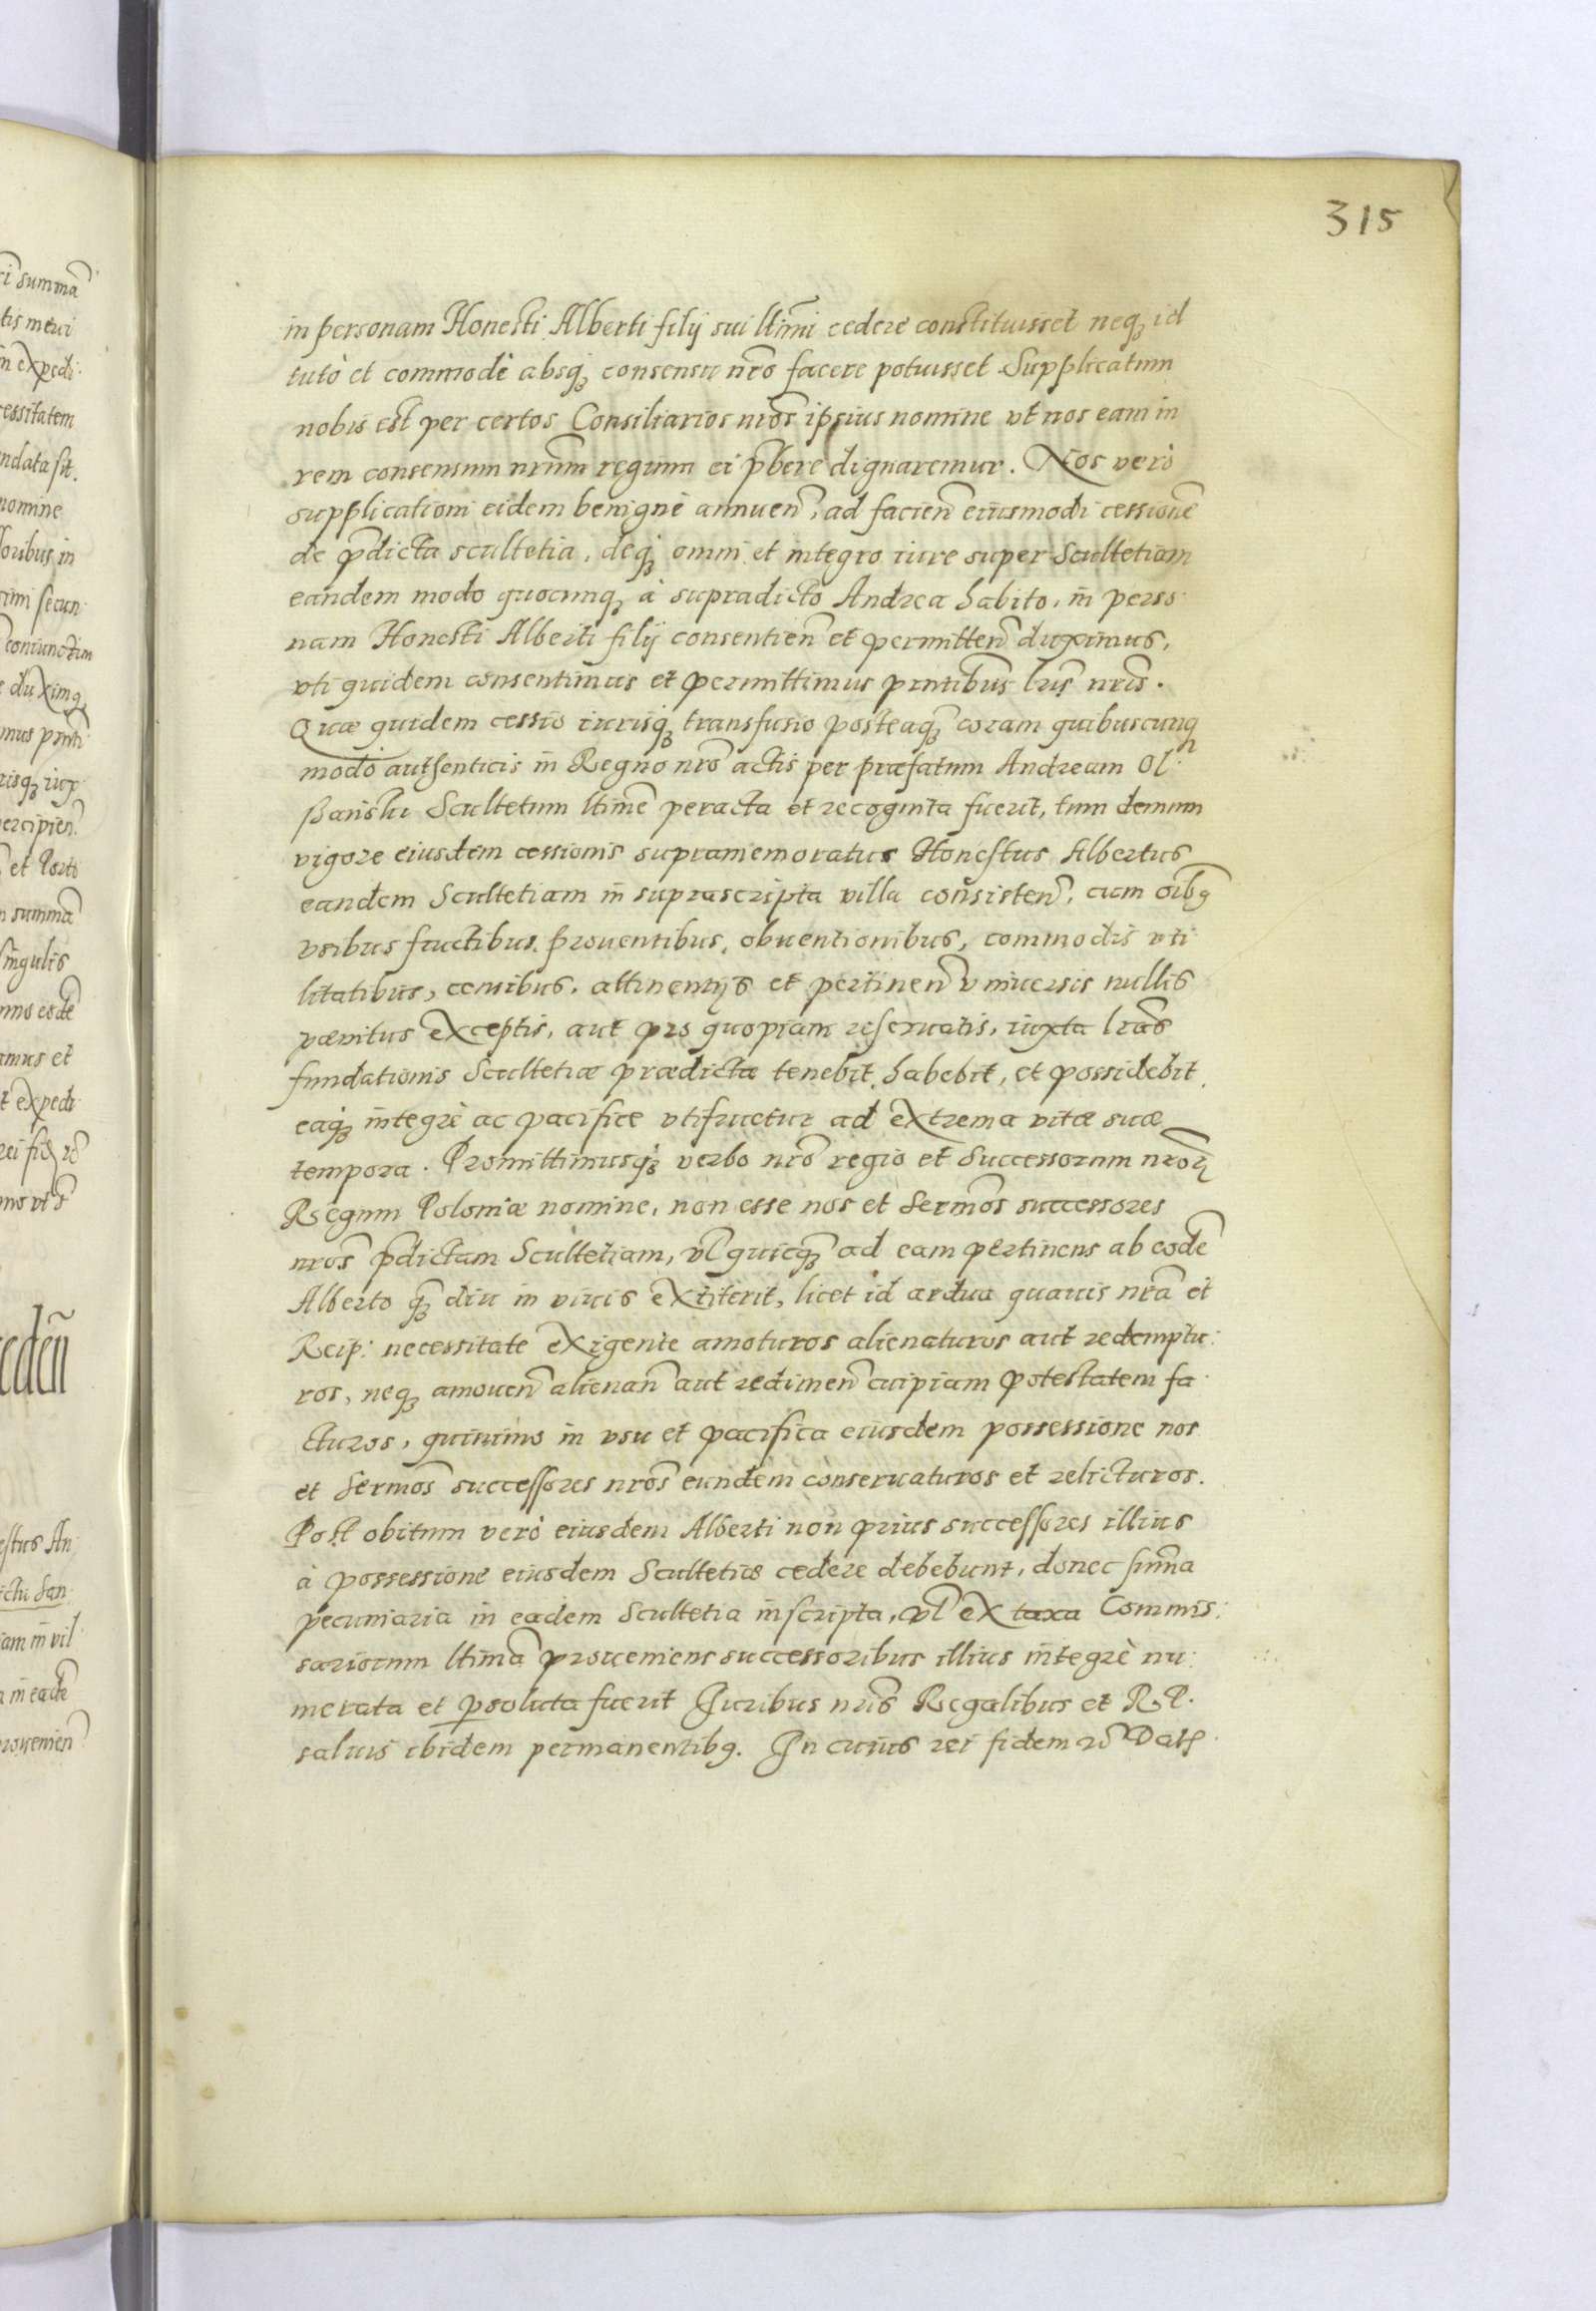 315
in personam Honesti Alberti filij sui ltĩmi cedere constituisset neq₃ id
tutò et commodè absq₃ consensu nr̃o facere potuisset Supplicatum
nobis est per certos Consiliarios nr̃os ipsius nomine vt nos eam in
rem consensum nr̃um regium ei p̃bere dignaremur. Nos verò
supplicationi eidem benignè annuen̄, ad facien̄ eiusmodi cessionē
de p̃dicta scultetia, deq₃ omni et integro iure super Scultetiam
eandem modo quocunq₃ à supradicto Andrea habito, in perso
nam Honesti Alberti filij consentien̄ et permitten̄ duximus,
vti quidem consentimus et permittimus pn̄tibus lr̃is nr̃is.
Quæ quidem cessio iurisq₃ transfusio posteaq₃ coram quibuscunq₃
modo authenticis in Regno nr̃o actis per præfatum Andream Ol
szański Scultetum ltĩmē peracta et recognita fuerit, tum demum
vigore eiusdem cessionis supramemoratus Honestus Albertus
eandem Scultetiam in suprascripta villa consisten̄, cum oĩbq
vsibus fructibus, prouentibus, obuentionibus, commodis vti
litatibus, censibus, attinentijs et pertinen̄ vniuersis nullis
pœnitus exceptis, aut pro quopiam reseruatis, iuxta lr̃as
fundationis Scultetiæ prædictæ tenebit, habebit, et possidebit
eaq₃ integrè ac pacificè vtifruetur ad extrema vitæ suæ
tempora. Promittimusq₃ verbo nr̃o regio et Successorum nr̃oꝝ
Regum Poloniæ nomine, non esse nos et Sermos successores
nr̃os p̃dictam Scultetiam, vl̃ quicq₃ ad eam pertinens ab eodē
Alberto q₃ diu in viuis extiterit, licet id ardua quauis nr̃a et
Reip: necessitate exigente amoturos alienaturos aut redemptu:
ros, neq₃ amouen̄ alienan̄ aut redimen̄ cuipiam potestatem fa
cturos, quinimo in vsu et pacifica eiusdem possessione nos
et Sermos successores nr̃os eundem conseruaturos et relicturos.
Post obitum verò eiusdem Alberti non prius successores illius
à possessione eiusdem Scultetiæ cedere debebunt, donec sum̃a
pecuniaria in eadem Scultetia inscripta, vl̃ ex taxa Commis:
sariorum ltĩma proueniens successoribus illius integrè nu:
merata et persoluta fuerit Iuribus nr̃is Regalibus et R.P.
saluis ibidem permanentibq. In cuius rei fidem ꝛc̃ Datꝭ